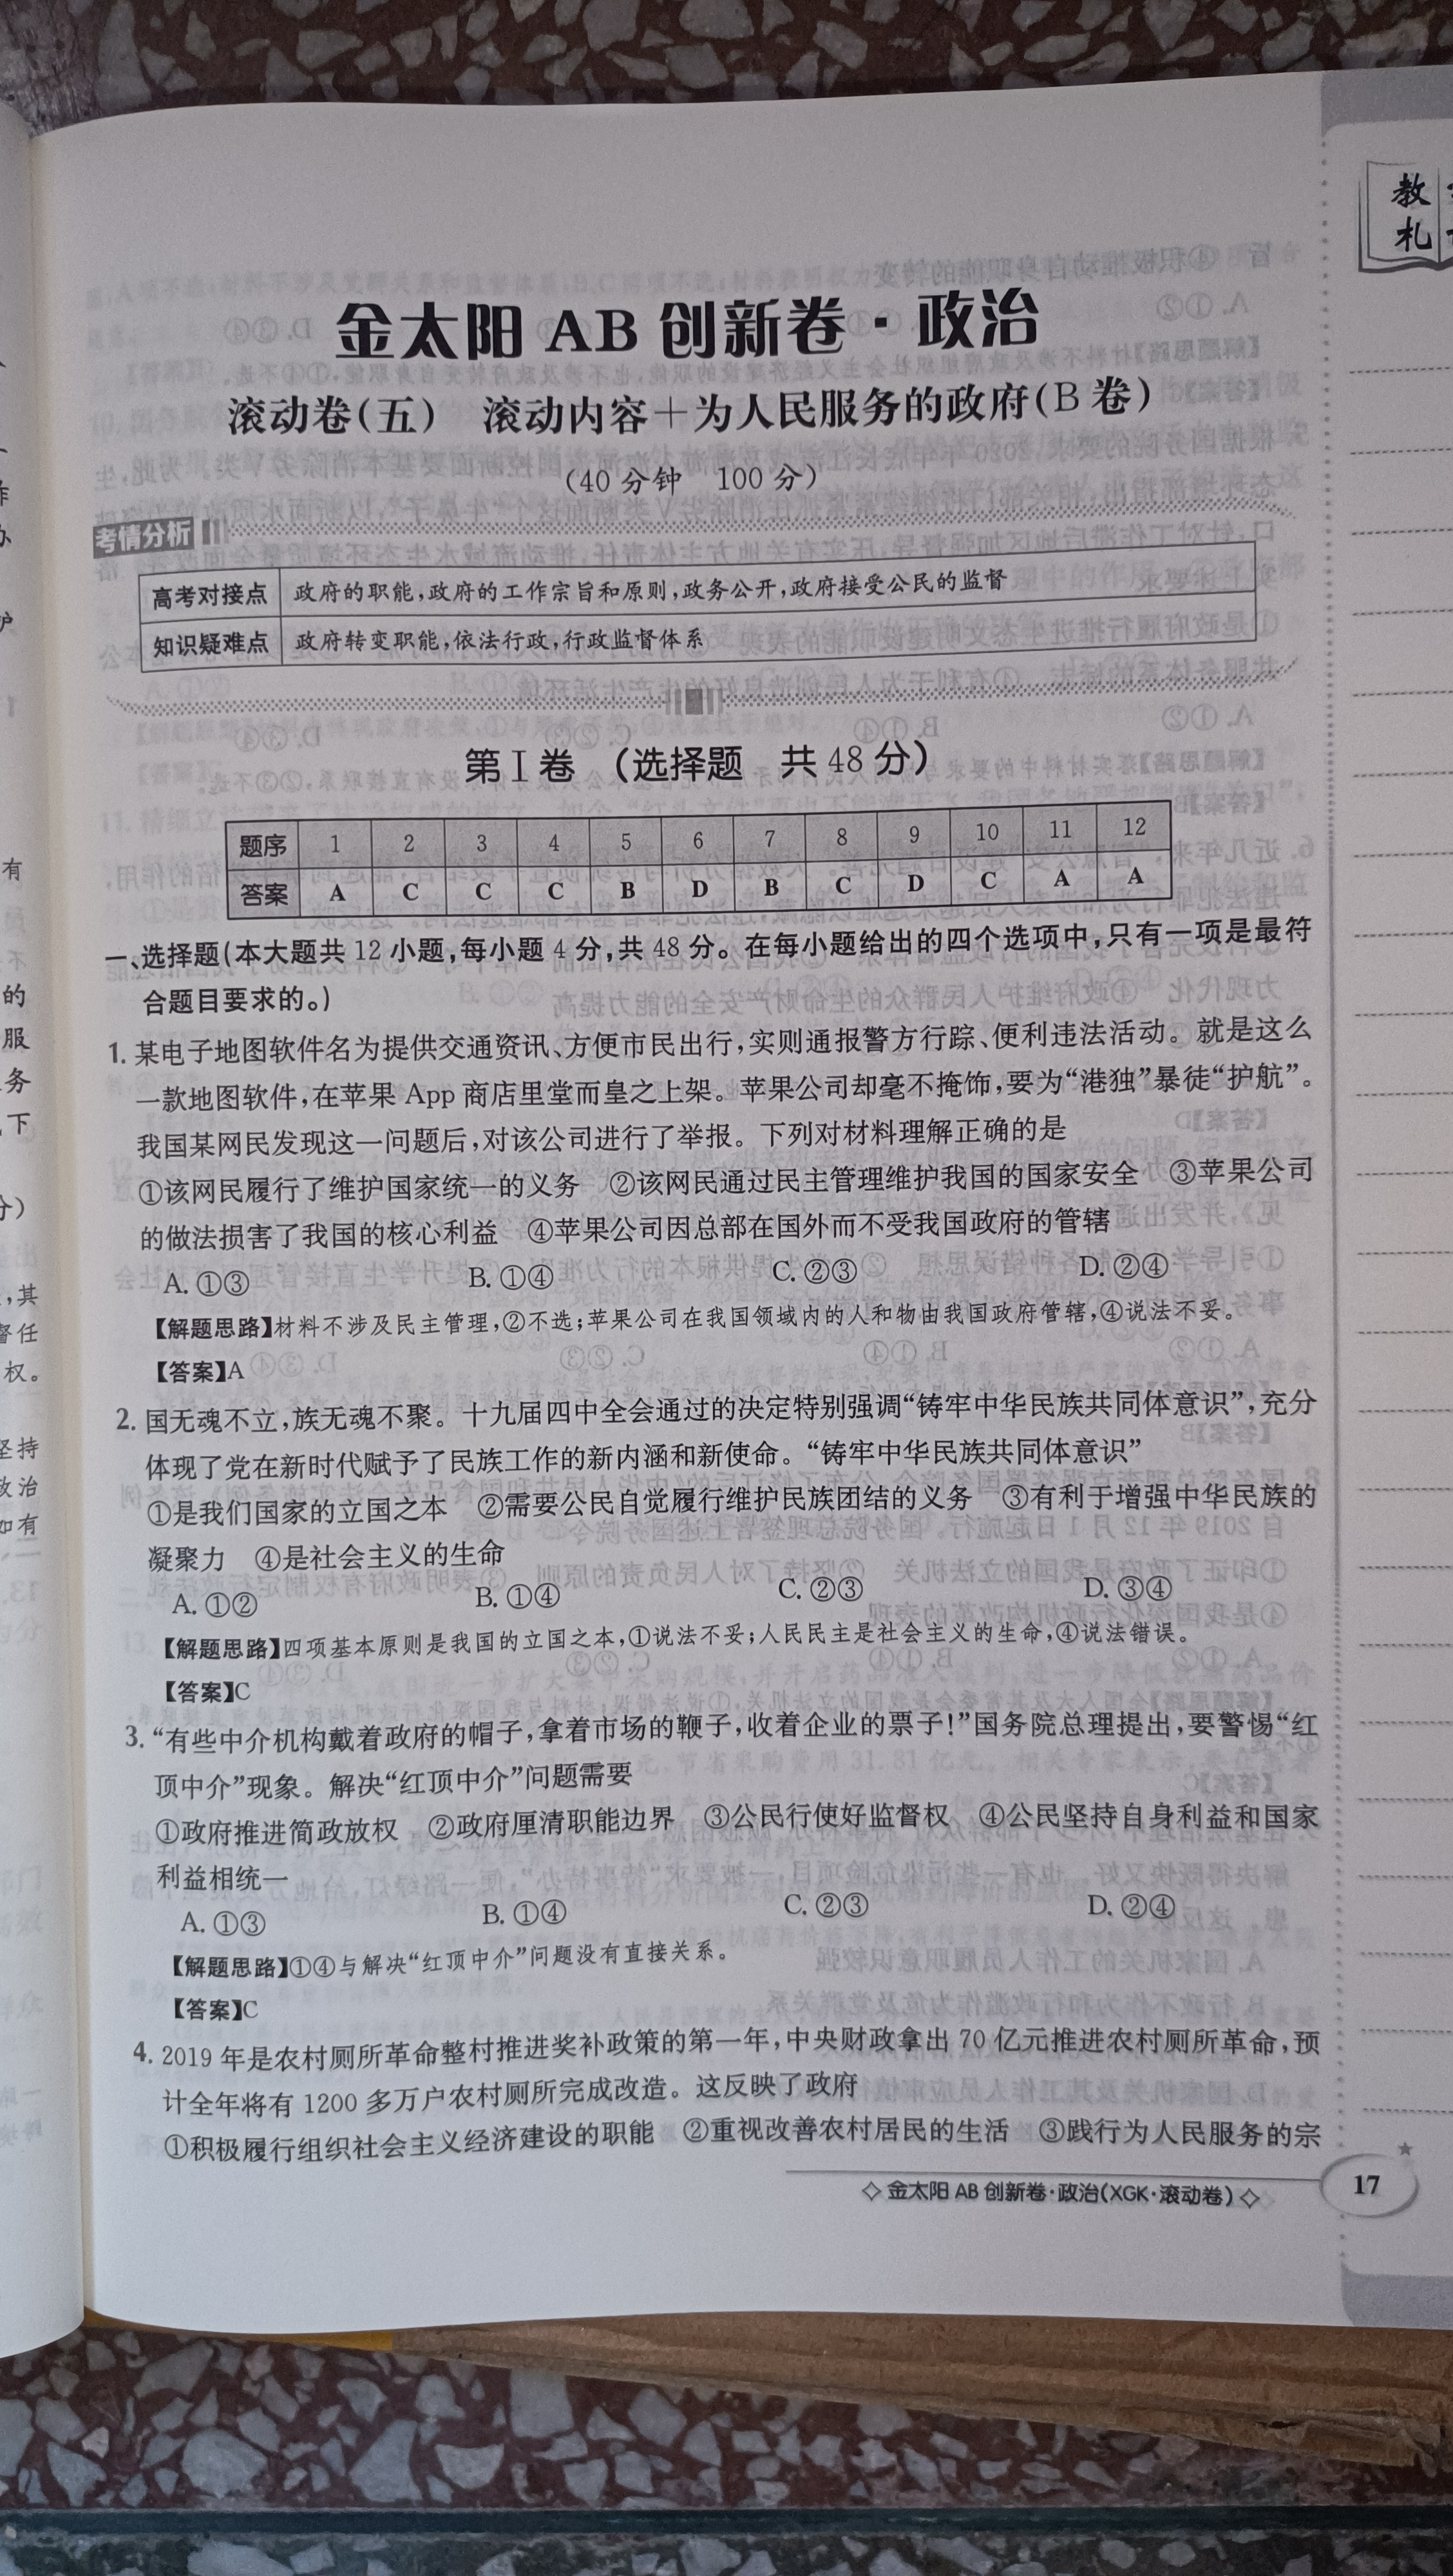 教
札
金太阳 AB 创新卷·政治
滚动卷(五) 滚动内容+为人民服务的政府(B 卷)
(40 分钟 100 分)
考情分析
高考对接点 政府的职能,政府的工作宗旨和原则,政务公开,政府接受公民的监督
知识疑难点 政府转变职能,依法行政,行政监督体系
第Ⅰ卷 (选择题 共 48 分)
题序 1 2 3 4 5 6 7 8 9 10 11 12
答案 A C C C B D B C D C A A
一、选择题(本大题共 12 小题,每小题 4 分,共 48 分。在每小题给出的四个选项中,只有一项是最符
合题目要求的。)
1. 某电子地图软件名为提供交通资讯、方便市民出行,实则通报警方行踪、便利违法活动。就是这么
一款地图软件,在苹果 App 商店里堂而皇之上架。苹果公司却毫不掩饰,要为“港独”暴徒“护航”。
我国某网民发现这一问题后,对该公司进行了举报。下列对材料理解正确的是
①该网民履行了维护国家统一的义务 ②该网民通过民主管理维护我国的国家安全 ③苹果公司
的做法损害了我国的核心利益 ④苹果公司因总部在国外而不受我国政府的管辖
A. ①③ B. ①④ C. ②③ D. ②④
【解题思路】材料不涉及民主管理,②不选;苹果公司在我国领域内的人和物由我国政府管辖,④说法不妥。
【答案】A
2. 国无魂不立,族无魂不聚。十九届四中全会通过的决定特别强调“铸牢中华民族共同体意识”,充分
体现了党在新时代赋予了民族工作的新内涵和新使命。“铸牢中华民族共同体意识”
①是我们国家的立国之本 ②需要公民自觉履行维护民族团结的义务 ③有利于增强中华民族的
凝聚力 ④是社会主义的生命
A. ①② B. ①④ C. ②③ D. ③④
【解题思路】四项基本原则是我国的立国之本,①说法不妥;人民民主是社会主义的生命,④说法错误。
【答案】C
3. “有些中介机构戴着政府的帽子,拿着市场的鞭子,收着企业的票子!”国务院总理提出,要警惕“红
顶中介”现象。解决“红顶中介”问题需要
①政府推进简政放权 ②政府厘清职能边界 ③公民行使好监督权 ④公民坚持自身利益和国家
利益相统一
A. ①③ B. ①④ C. ②③ D. ②④
【解题思路】①④与解决“红顶中介”问题没有直接关系。
【答案】C
4. 2019 年是农村厕所革命整村推进奖补政策的第一年,中央财政拿出 70 亿元推进农村厕所革命,预
计全年将有 1200 多万户农村厕所完成改造。这反映了政府
①积极履行组织社会主义经济建设的职能 ②重视改善农村居民的生活 ③践行为人民服务的宗
◇金太阳 AB 创新卷·政治(XGK·滚动卷)◇
17